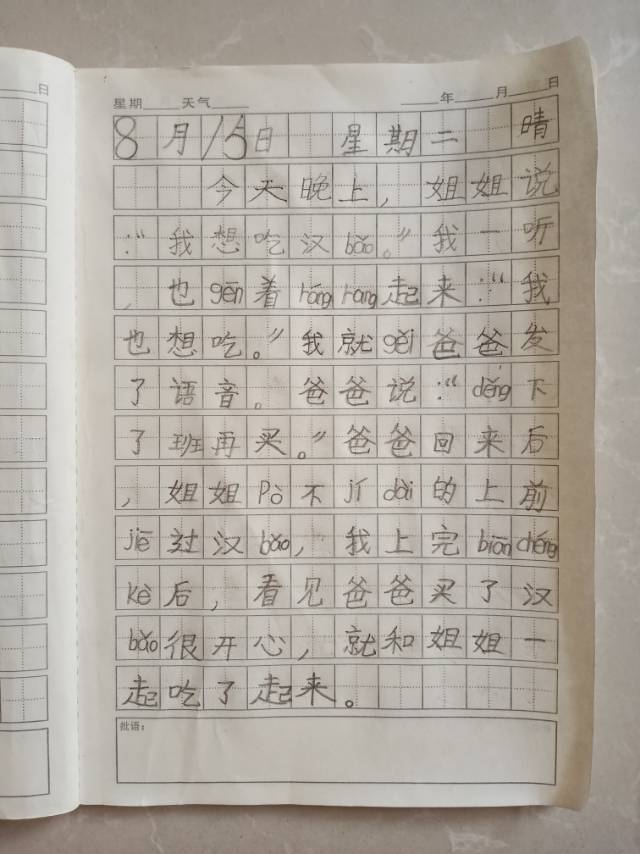 日
星期 天气 年 月 日
8月15日 星期二 晴
今天晚上，姐姐说
：“我想吃汉bǎo。”我一听
，也gēn着rǎng rang起来：“我
也想吃。”我就gěi爸爸发
了语音。爸爸说：“děng下
了班再买。”爸爸回来后
，姐姐Pò不jí dài的上前
jiē过汉bǎo，我上完biān chéng
kè后，看见爸爸买了汉
bǎo很开心，就和姐姐一
起吃了起来。
批语：